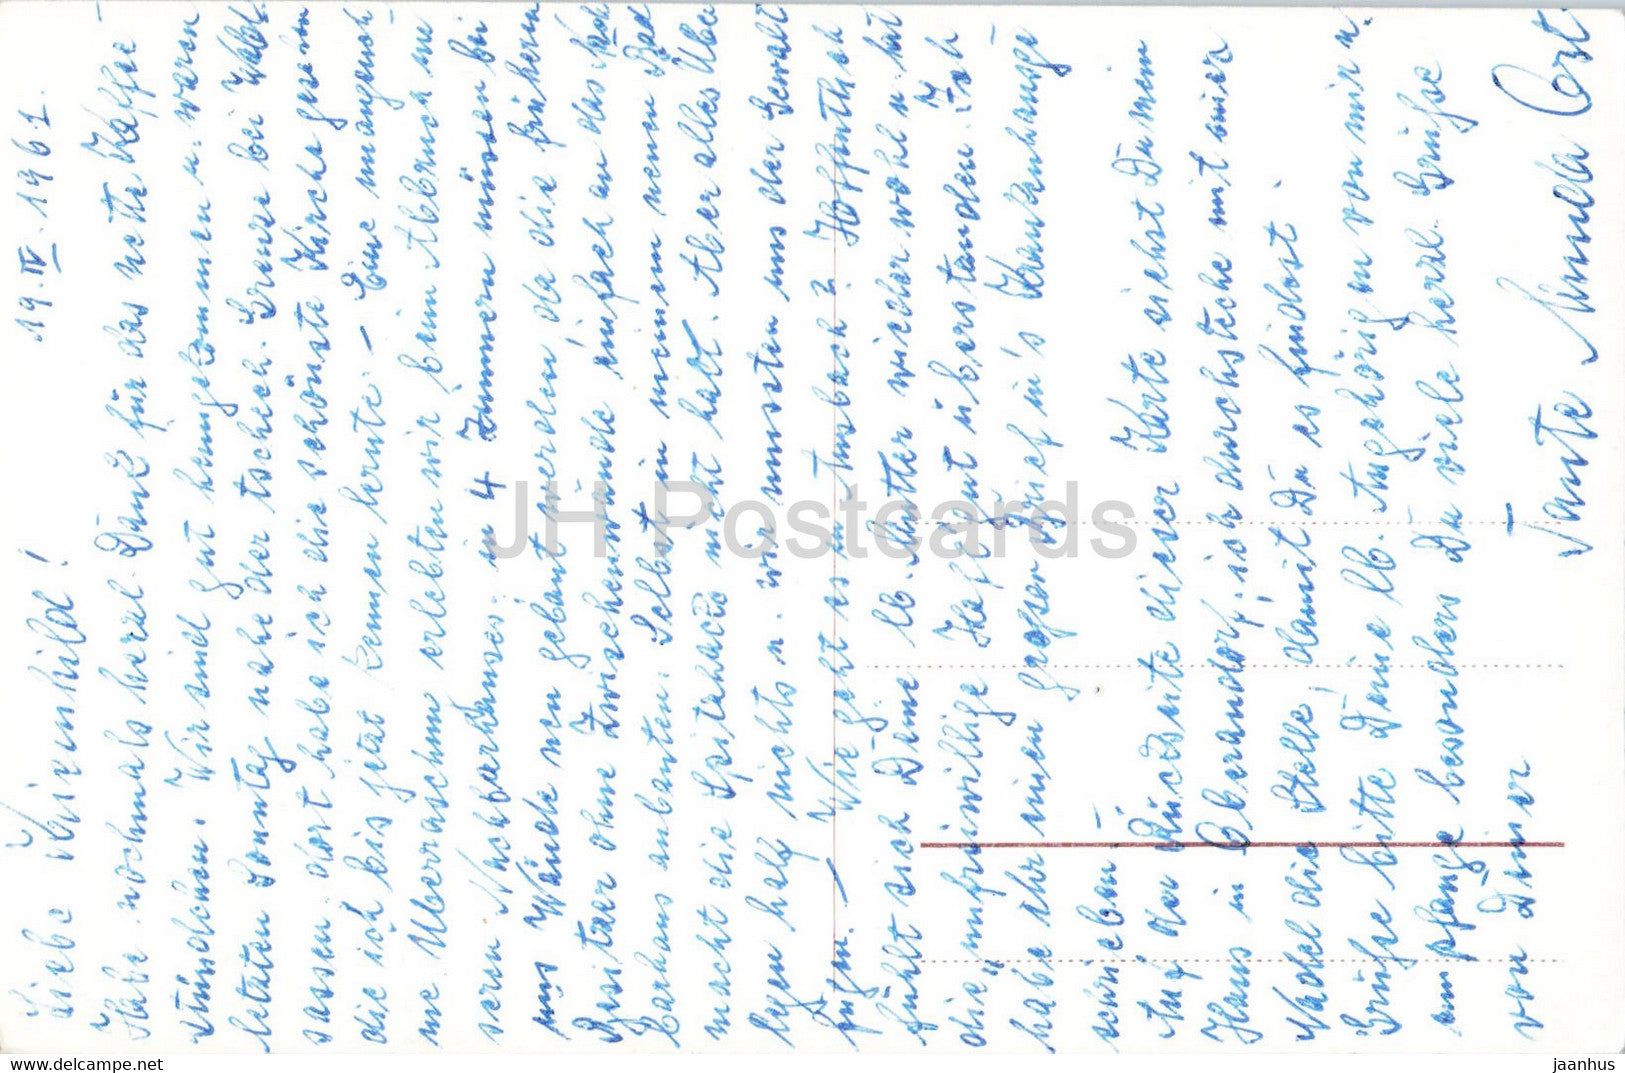 19.IV.1961.
Liebe Kriemhild!
Habe nochmals herzl. Dank für das nette Kaffee-
stündchen. Wir sind gut heimgekommen u. waren
letzten Sonntag nahe der tschech. Grenze bei
sassen, dort habe ich die schönste Kirche gesehen
die ich bis jetzt kennen lernte. – Eine unangeneh
me Überraschung erlebten wir beim Abbruch un
seres Nachbarhauses: in 4 Zimmern müssen bei
uns Wände neu gebaut werden, da die früheren
Besitzer ohne Zwischenwände einfach an das Nach
barhaus anbauten. Selbst in meinem neuen Bad
macht die Spitzhacke nicht halt. Aber alles Über
legen half nichts u. wir mussten uns der Gewalt
fügen. – Wie geht es in Ansbach? Hoffentlich
fühlt sich Deine lb. Mutter wieder wohl u. hat
die "unfreiwillige Haft" gut überstanden. Ich
habe ihr einen grossen Brief in's Krankenhaus ge
schrieben.
Auf der Rückseite dieser Karte siehst Du mein
Haus in Oberndorf; ich durchsteche mit einer
Nadel die Stelle, damit Du es findest.
Grüsse bitte Deine lb. Angehörigen von mir u.
empfange besonders Du viele herzl. Grüsse
von Deiner
Tante
JH Postcards
www.delcampe.net
jaanhus